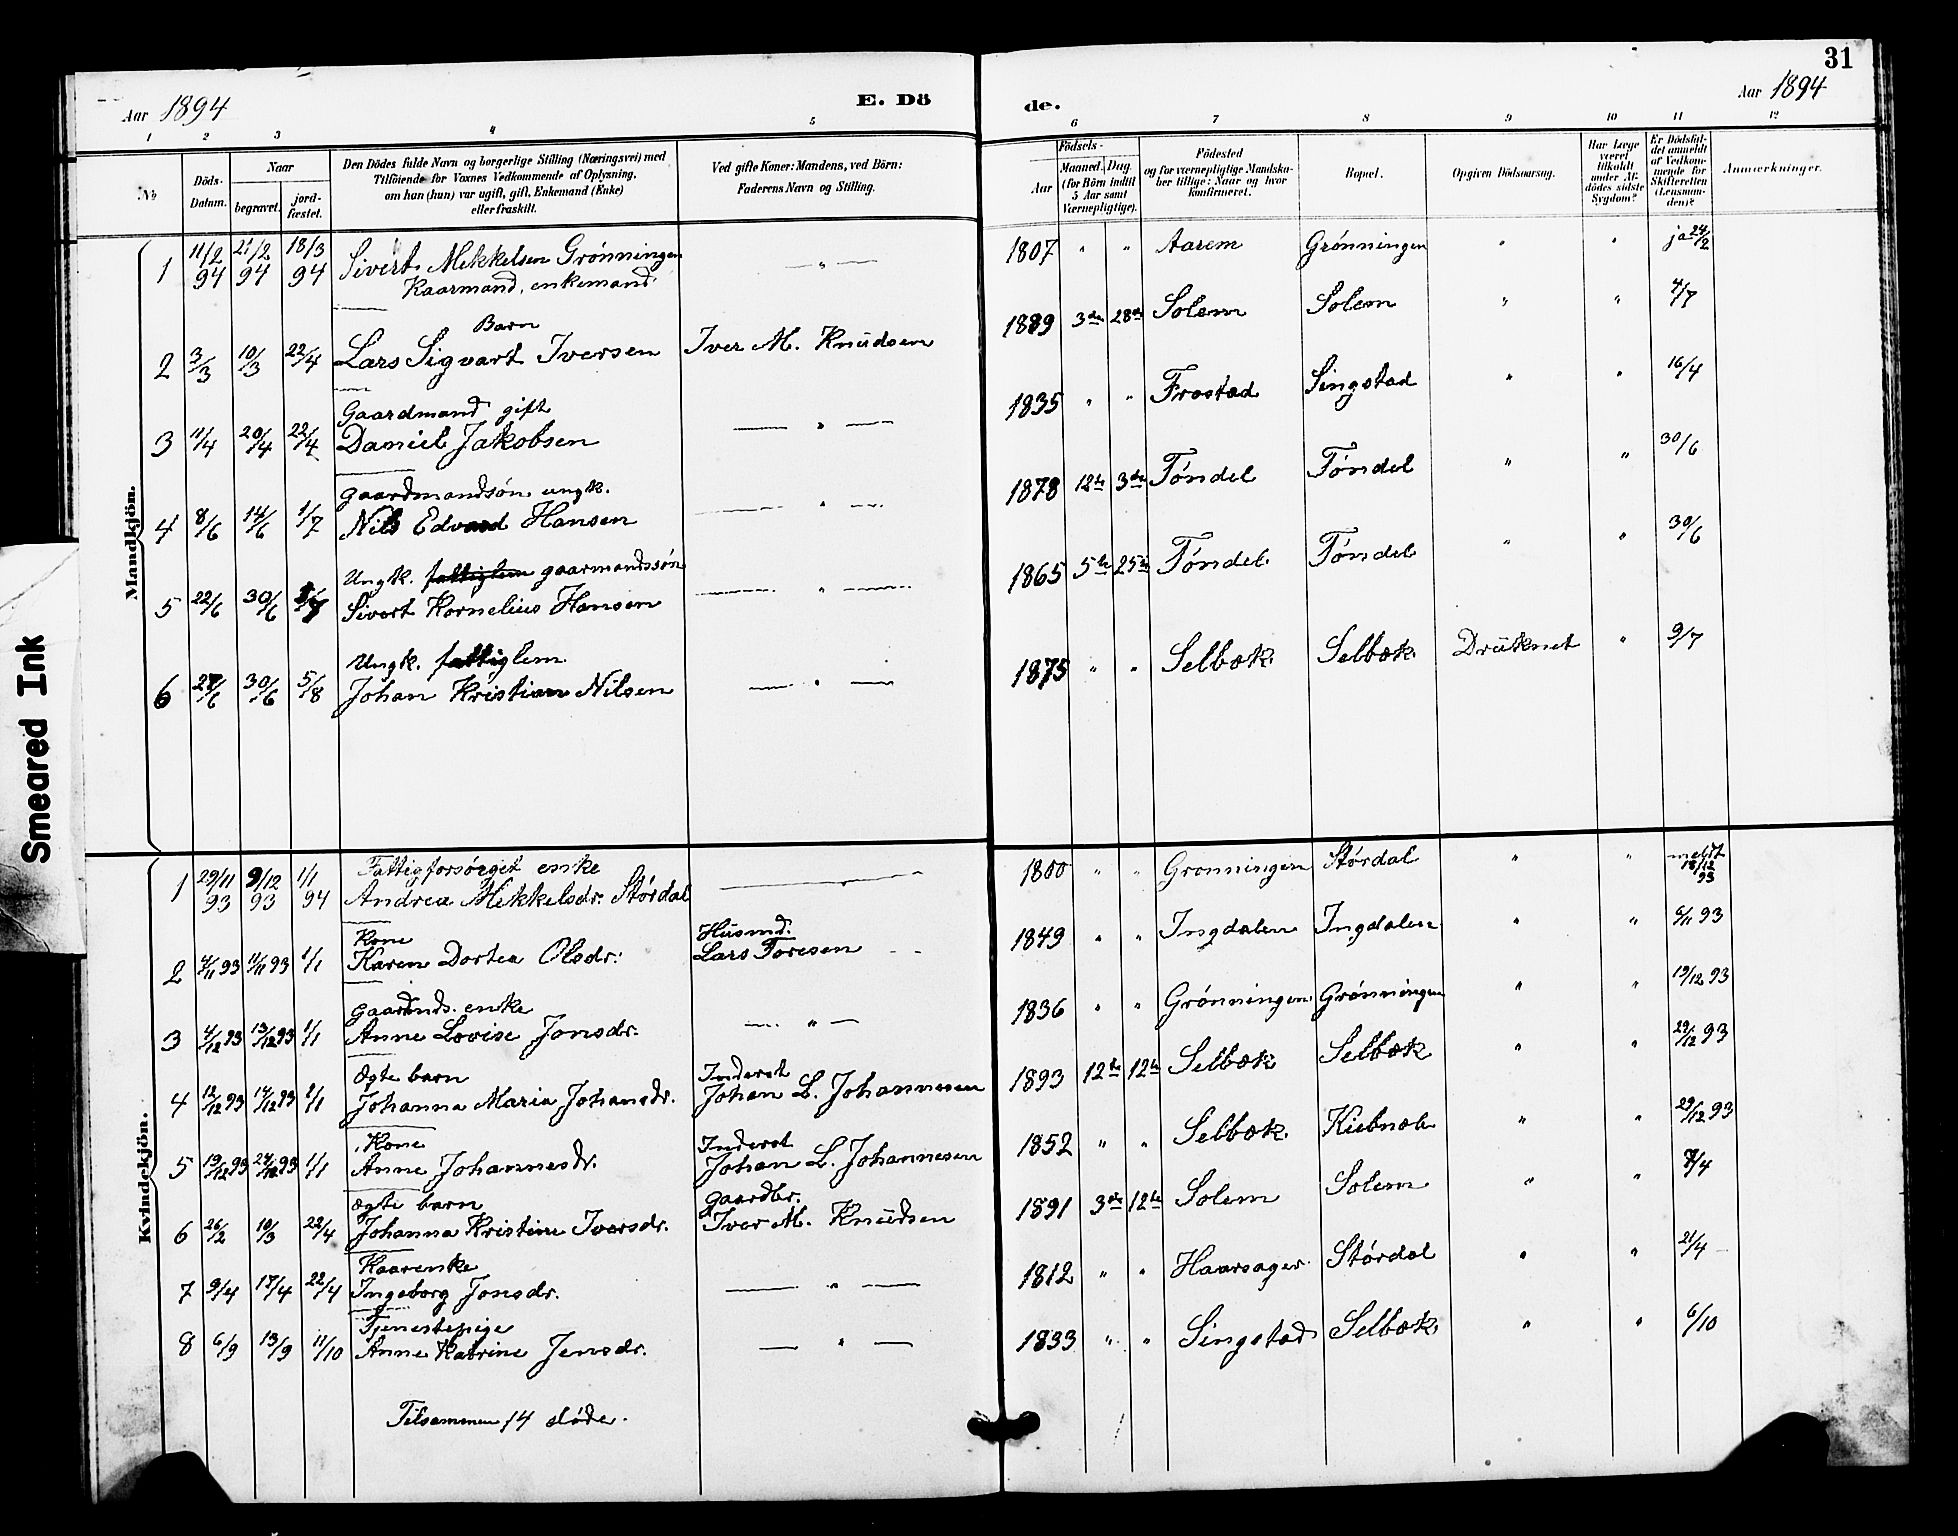 31
Aar 1894
E. Dö
de.
Aar 1894
1 2 3 4 5 6 7 8 9 10 11 12
No
Döds-Datum.
Naar
begravet.
jord-fæstet.
Den Dödes fulde Navn og borgerlige Stilling (Næringsvei) med
Tilföiende for Voxnes Vedkommende af Oplysning,
om han (hun) var ugift, gift, Enkemand (Enke)
eller fraskilt.
Ved gifte Koner: Mandens, ved Börn:
Faderens Navn og Stilling.
Födsels-
Aar
Maaned. Dag.
(for Börn indtil
5 Aar samt
Værnepligtige).
Födested
og for værnepligtige Mandska-
ber tillige: Naar og hvor
konfirmeret.
Bopæl.
Opgiven Dödsaarsag.
Har Læge
været
tilkaldt
under Af-
dödes sidste
Sygdom?
Er Dödsfal-
det anmeldt
af Vedkom-
mende for
Skifteretten
(Lensman-
den)?
Anmærkninger.
Mandkjön.
1 11/2 94 21/2 94 18/3 94 Sivert Mekkelsen Grónningen — " — 1807 " " Aarem Grónningen " " ja 24/2
Kaarmand, enkemand
Barn
2 3/3 10/3 22/4 Lars Sigvart Iversen Iver M. Knudsen 1889 3de 28de Solem Solem " " 4/7
Gaardmand gift
3 11/4 20/4 22/4 Daniel Jakobsen — " — 1835 " " Frostad Singstad " " 16/4
gaardmandsón ungk.
4 8/6 14/6 1/7 Nils Edvard Hansen — " — 1878 12te 3die Tóndel Tóndel " " 30/6
Ungk. fattiglem gaarmandssón
5 22/6 30/6 Sivert Kornelius Hansen — " — 1865 5te 25de Tóndel Tóndel " " 30/6
Ungk. fattiglem
6 30/6 5/8 Johan Kristian Nilsen — " — 1875 " " Selbæk Selbæk Druknet " 9/7
Kvindekjön.
Fattigforsórget enke
1 29/11 93 9/12 93 1/1 94 Andrea Mekkelsdr. Stórdal — " — 1800 " " Gronningen Stórdal " " meldt 18/12 93
Kone Husmd.
2 4/11 93 11/11 93 1/1 Karen Dortea Olsdr. Lars Toresen 1849 " " Ingdalen Ingdalen " " 6/11 93
Gaardmds. enke
3 4/12 93 13/12 93 1/1 Anne Lovise Jonsdr. — " — 1836 " " Grónningen Grónningen " " 19/12 93
Ægte barn Inderst
4 12/12 93 17/12 93 1/1 Johanna Maria Johansdr. Johan L. Johannesen 1893 12te 12te Selbæk Selbæk " " 29/12 93
Kone Inderst
5 19/12 93 24/12 93 1/1 Anne Johannesdr. Johan L. Johannesen 1852 " " Selbæk " " 29/12 93
ægte barn gaardbr.
6 26/2 10/3 22/4 Johanna Kristine Iversdr. Iver M. Knudsen 1891 3die 12te Solem Solem " " 7/4
Kaarenke
7 9/4 17/4 22/4 Ingeborg Jonsdr. — " — 1812 " " Haarsager Stórdal " " 21/4
Tjenestepige
8 6/9 13/9 11/10 Anne Katrine Jensdr. — " — 1833 " " Singstad Selbæk " " 6/10
Tilsammen 14 dóde.
Smeared Ink